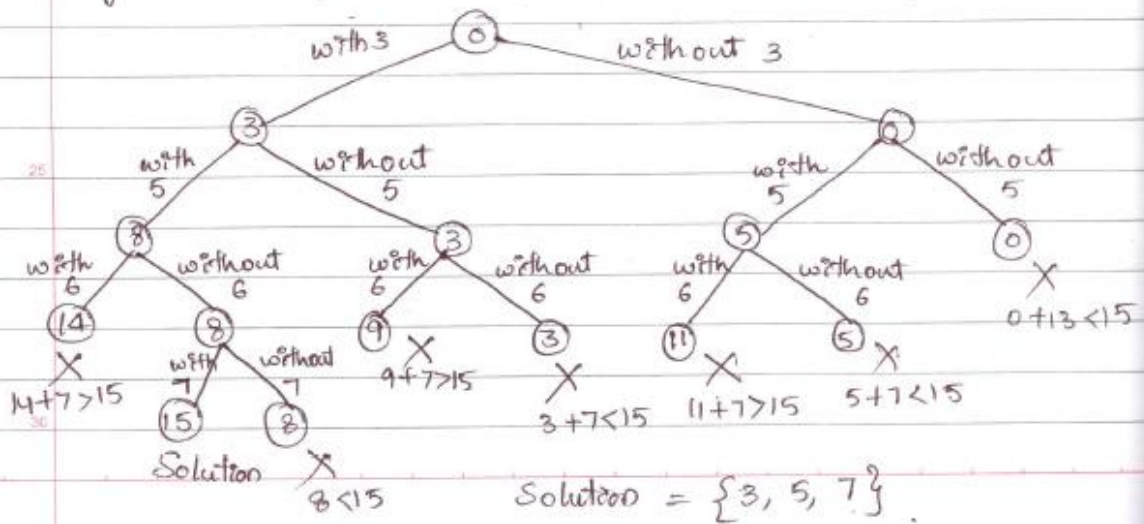 with 3 0 without 3
3 0
25 with 5 without 5 with 5 without 5
8 3 5 0
with 6 without 6 with 6 without 6 with 6 without 6
0+13<15
14 8 9 3 11 5
14+7>15 with 7 without 7 9+7>15 3+7<15 11+7>15 5+7<15
30 15 8
Solution 8<15 Solution = {3, 5, 7}.